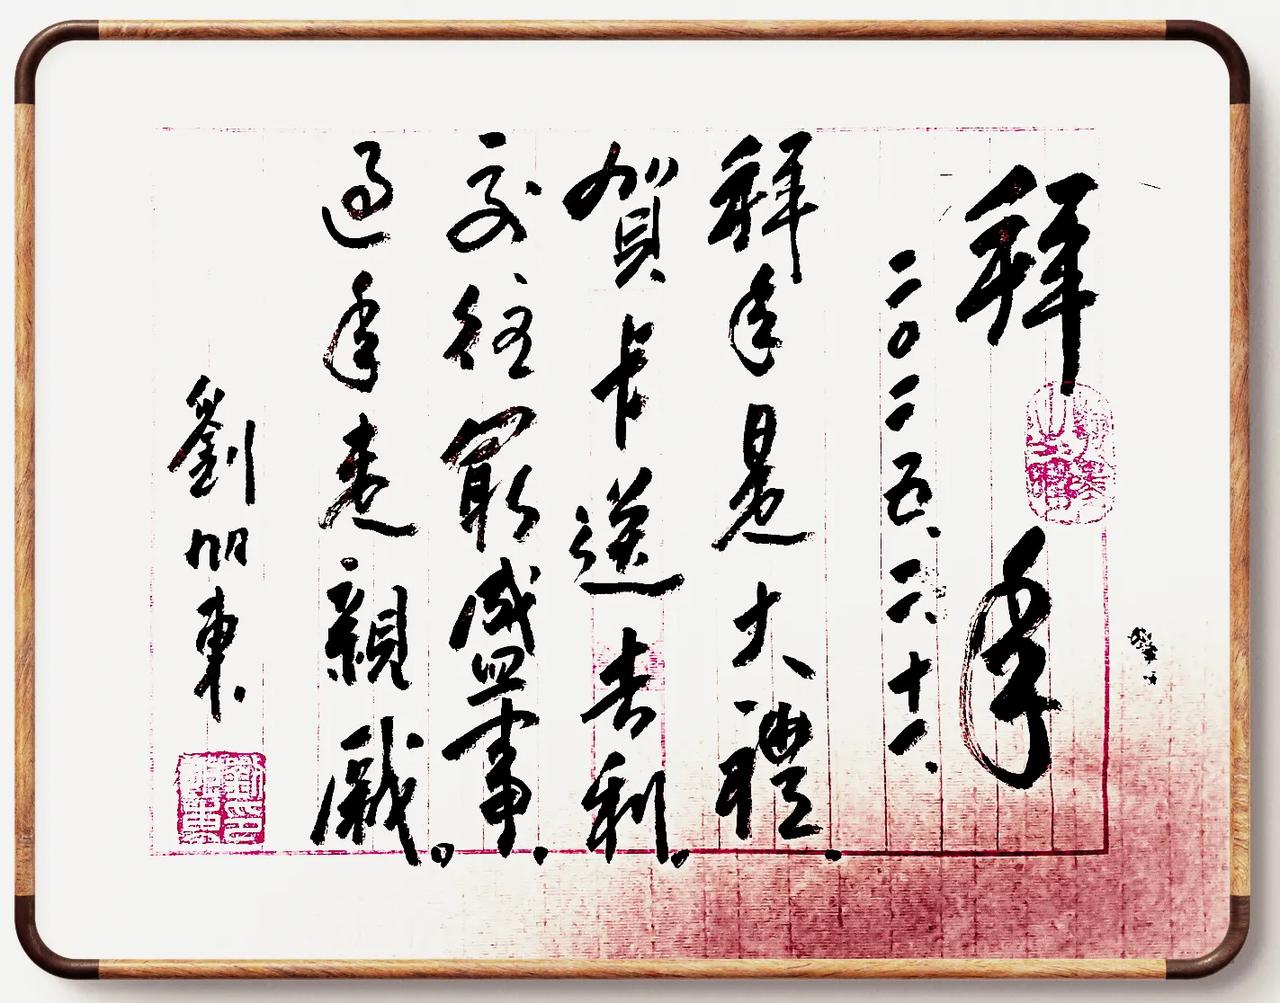 拜年
二〇二五.二.十一.
拜年是大禮.
賀卡送吉利.
交往最盛事.
過年走親戚.
劉旭東.
劉印旭東